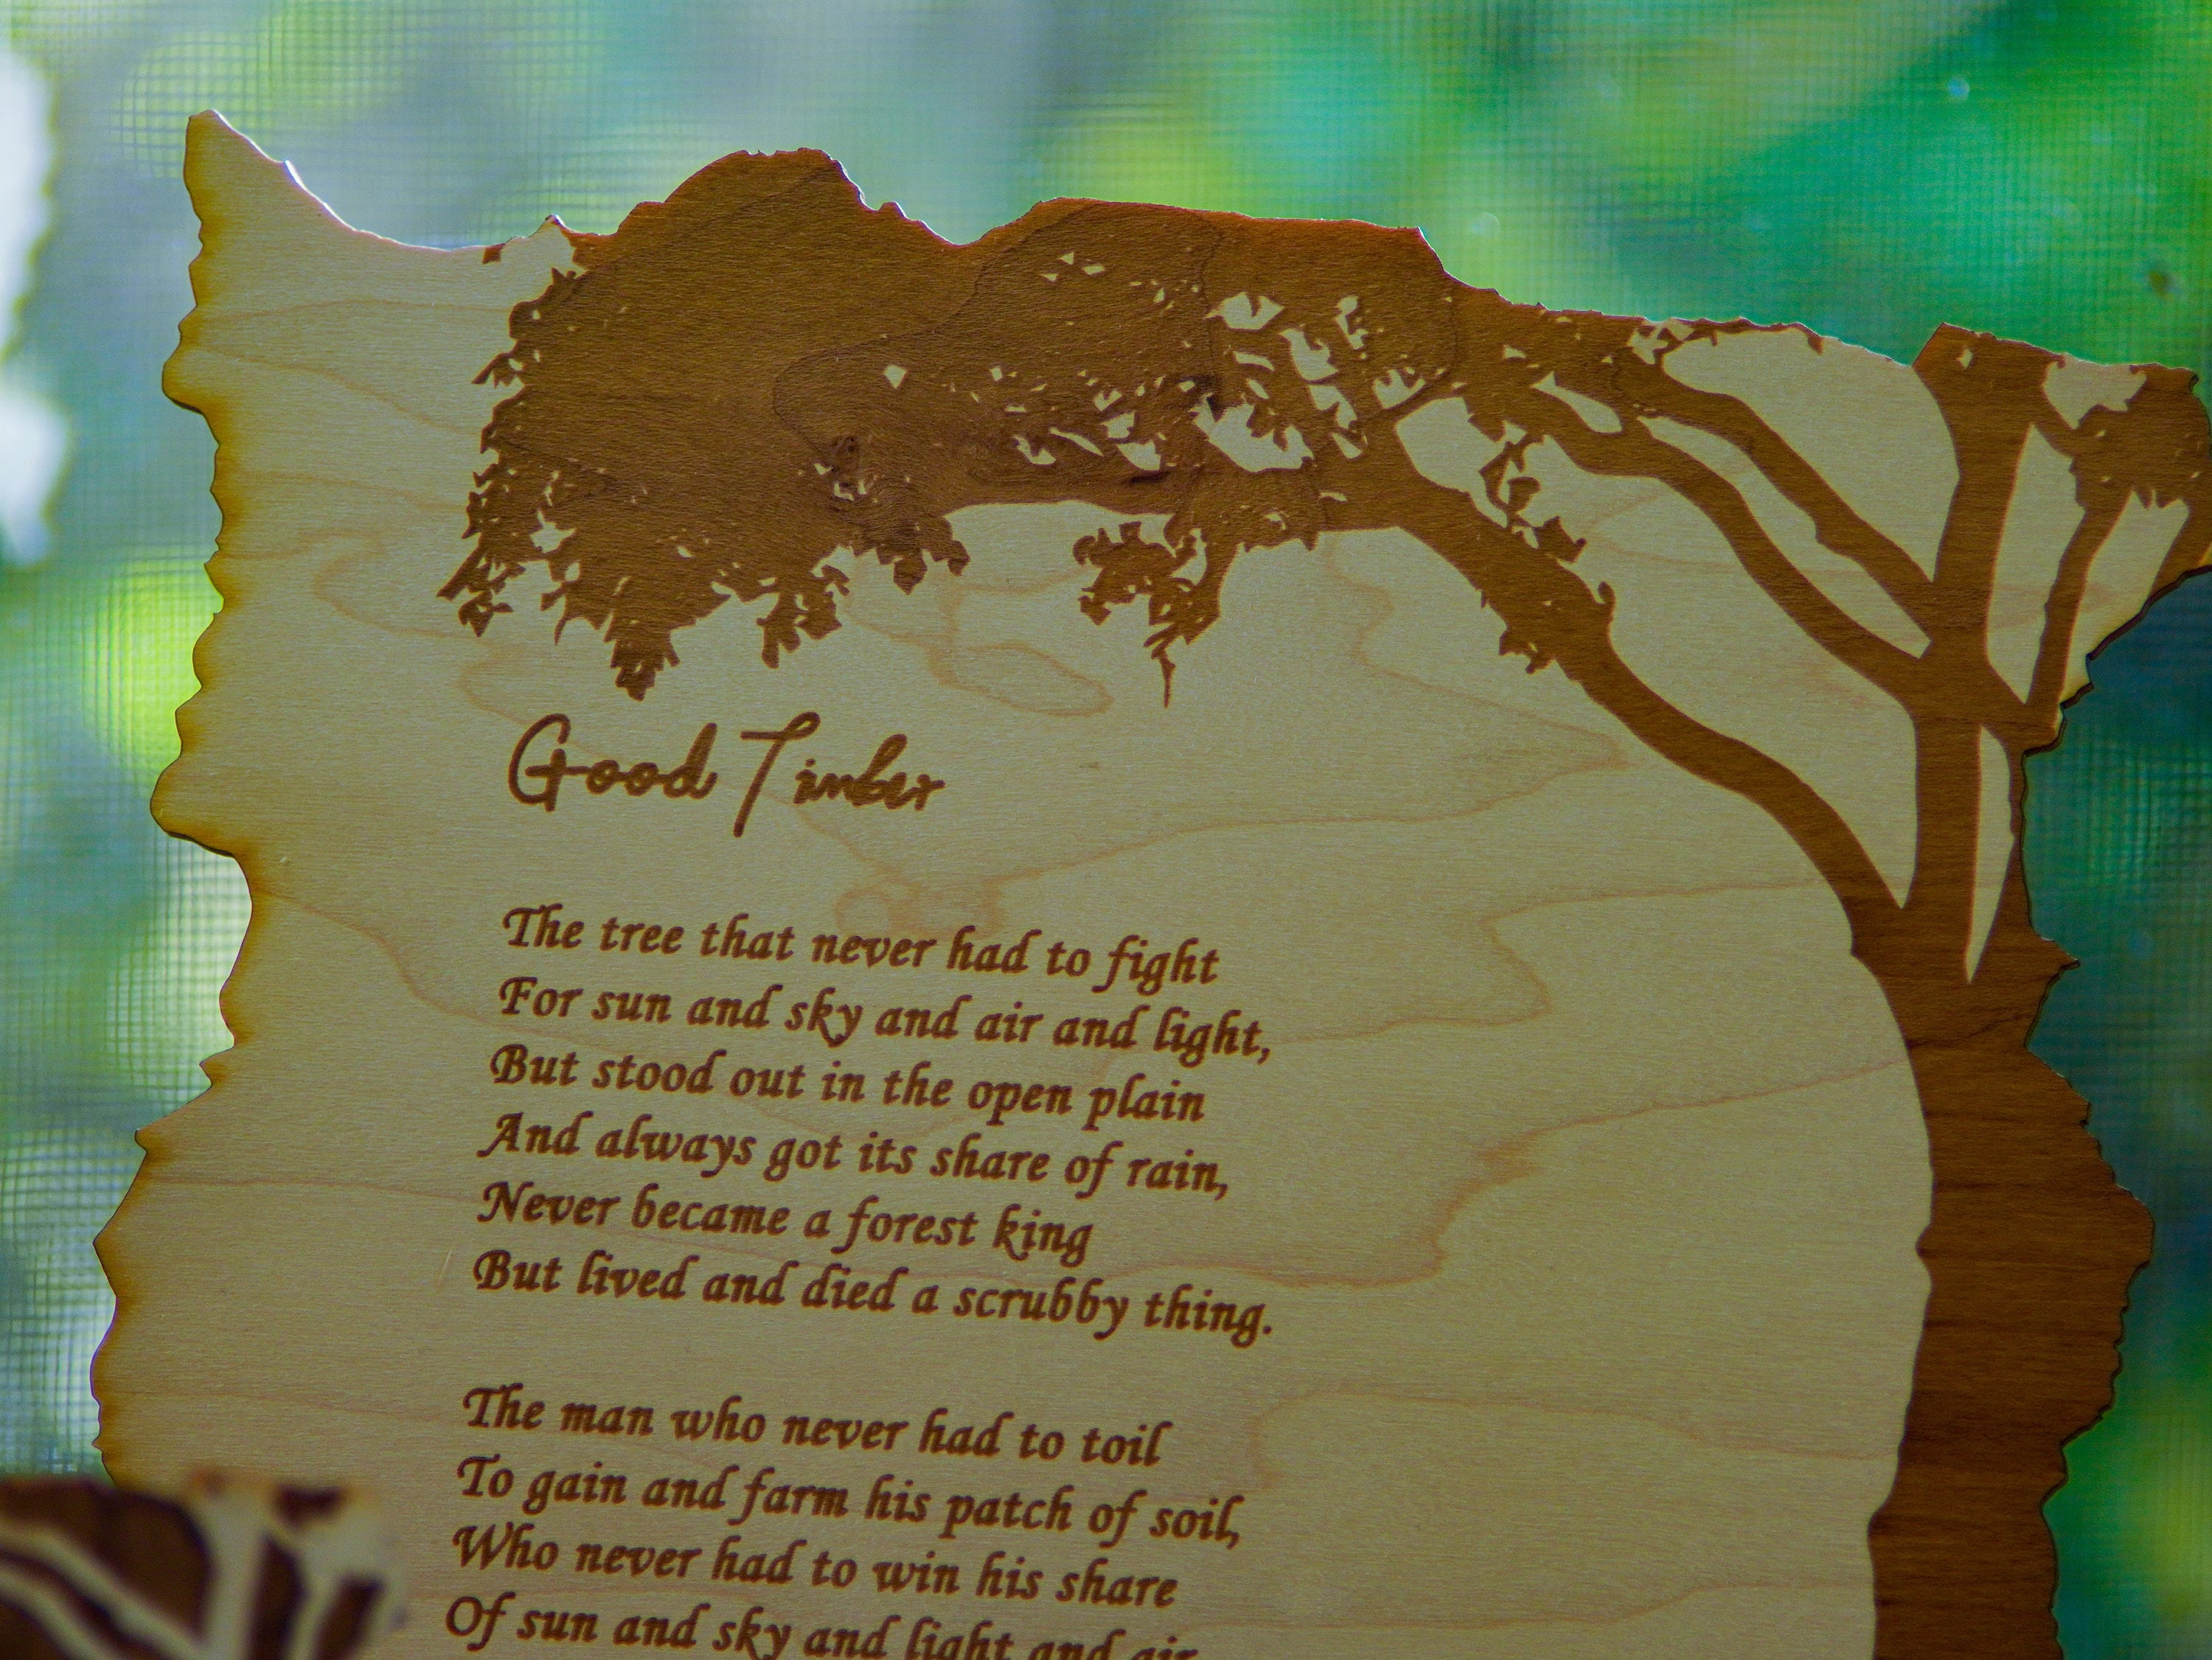 Good Timber
The tree that never had to fight
For sun and sky and air and light,
But stood out in the open plain
And always got its share of rain,
Never became a forest king
But lived and died a scrubby thing.
The man who never had to toil
To gain and farm his patch of soil,
Who never had to win his share
Of sun and sky and light and air